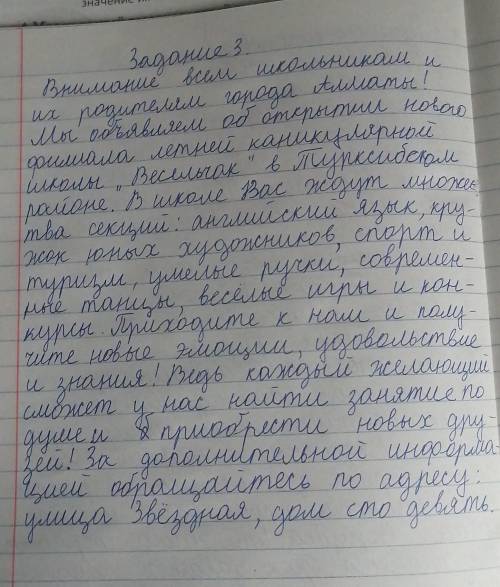 значение
Задание 3.
Внимание всем школьникам и
их родителям города Алматы!
Мы объявляем об открытии нового
филиала летней каникулярной
школы „Весельчак" в Турксибском
районе. В школе Вас ждут множес-
тва секций: английский язык, кру-
жок юных художников, спорт и
туризм, умелые ручки, современ-
ные танцы, весёлые игры и кон-
курсы. Приходите к нам и полу-
чите новые эмоции, удовольствие
и знания! Ведь каждый желающий
сможет у нас найти занятие по
душе и приобрести новых дру-
зей! За дополнительной информа-
цией обращайтесь по адресу:
улица Звёздная, дом сто девять.